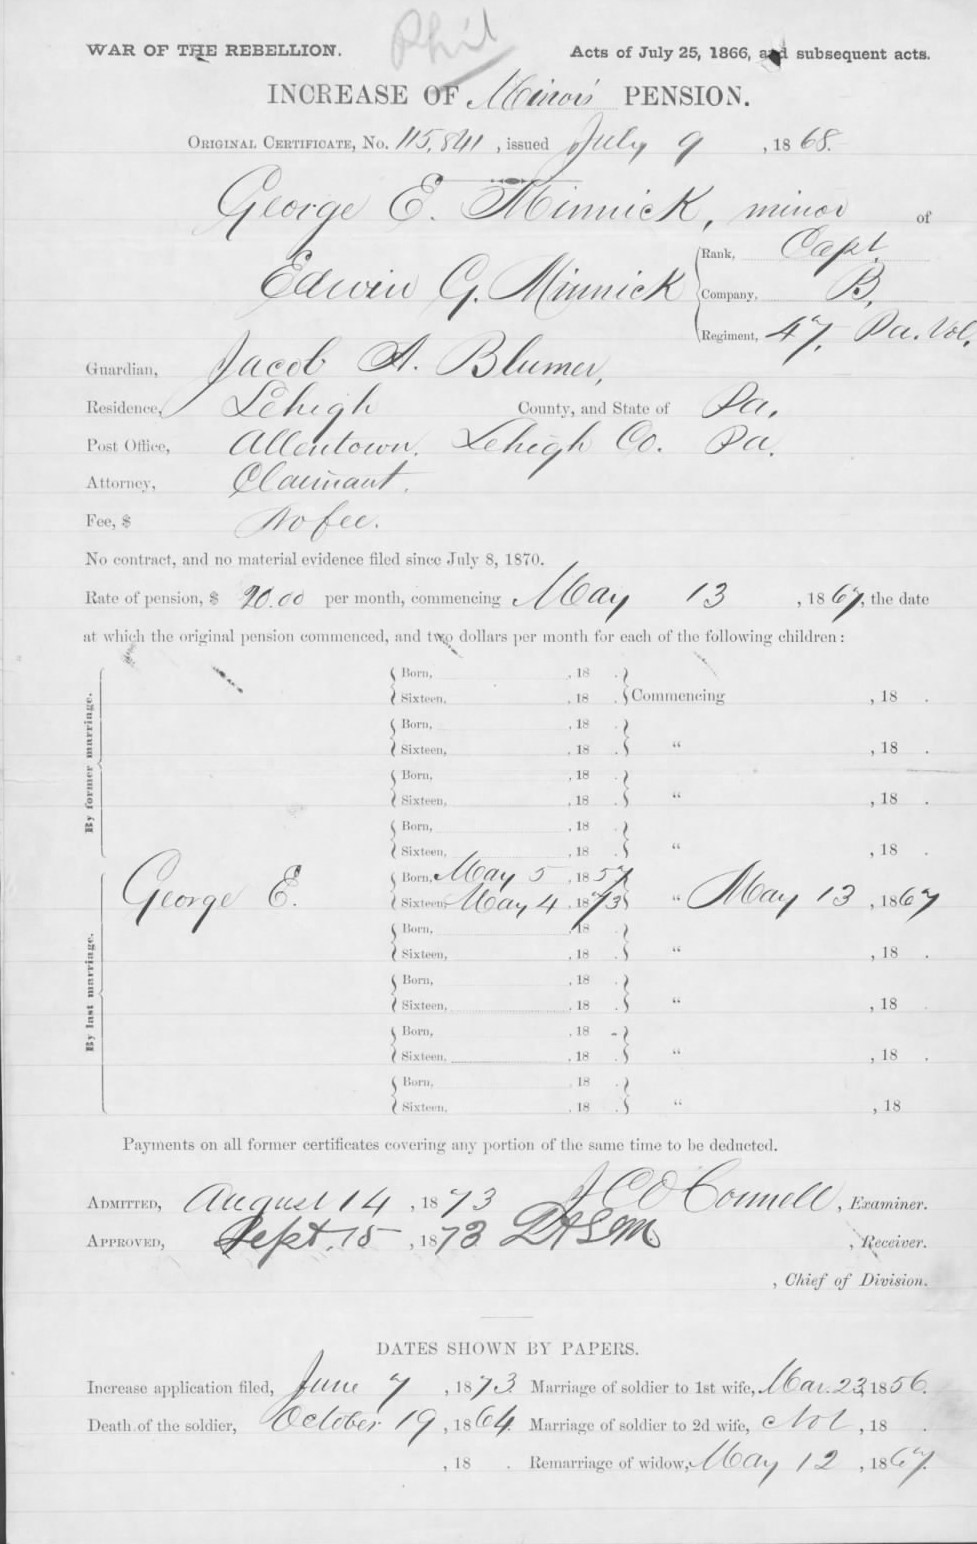 Phil
WAR OF THE REBELLION. Acts of July 25, 1866, and subsequent acts.
INCREASE OF Minor's PENSION.
ORIGINAL CERTIFICATE, NO. 115,841, issued July 9, 1868.
George E. Minnick, minor of
Edwin G. Minnick
Rank, Capt.
Company, B,
Regiment, 47, Pa. Vol,
Guardian, Jacob A. Blumer,
Residence, Lehigh County, and State of Pa,
Post Office, Allentown, Lehigh Co. Pa.
Attorney, Claimant,
Fee, $ No fee.
No contract, and no material evidence filed since July 8, 1870.
Rate of pension, $ 20.00 per month, commencing May 13, 1867, the date
at which the original pension commenced, and two dollars per month for each of the following children:
By former marriage.
Born, , 18 .
Sixteen, , 18 . Commencing , 18 .
Born, , 18 .
Sixteen, , 18 . " , 18 .
Born, , 18 .
Sixteen, , 18 . " , 18 .
Born, , 18 .
Sixteen, , 18 . " , 18 .
By last marriage.
George E. Born, May 5, 1857
Sixteen, May 4, 1873 " May 13, 1867
Born, , 18 .
Sixteen, , 18 . " , 18 .
Born, , 18 .
Sixteen, , 18 . " , 18 .
Born, , 18 .
Sixteen, , 18 . " , 18 .
Born, , 18 .
Sixteen, , 18 . " , 18
Payments on all former certificates covering any portion of the same time to be deducted.
ADMITTED, August 14, 1873 J C O'Connell, Examiner.
APPROVED, Sept. 15, 1873 , Receiver.
, Chief of Division.
DATES SHOWN BY PAPERS.
Increase application filed, June 7, 1873. Marriage of soldier to 1st wife, Mar. 23, 1856.
Death of the soldier, October 19, 1864. Marriage of soldier to 2d wife, Not, 18 .
, 18 . Remarriage of widow, May 12, 1867.